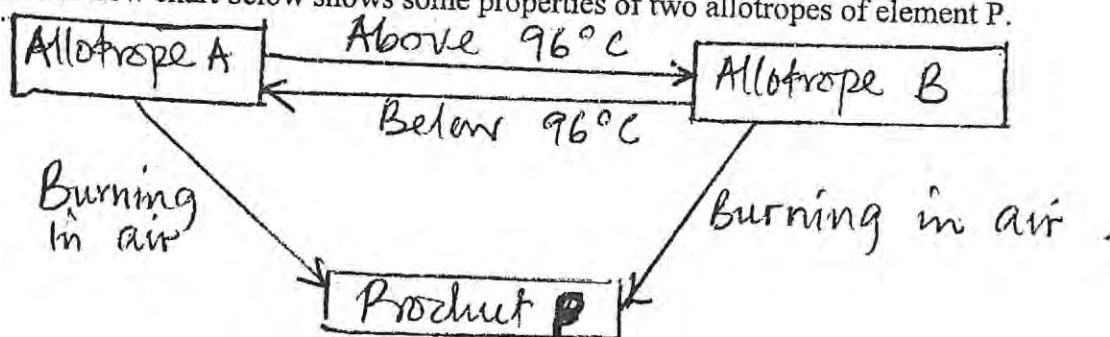 flow chart below shows some properties of two allotropes of element P.
Allotrope A
Above 96°C
Allotrope B
Below 96°C
Burning
in air
Burning in air.
Product P